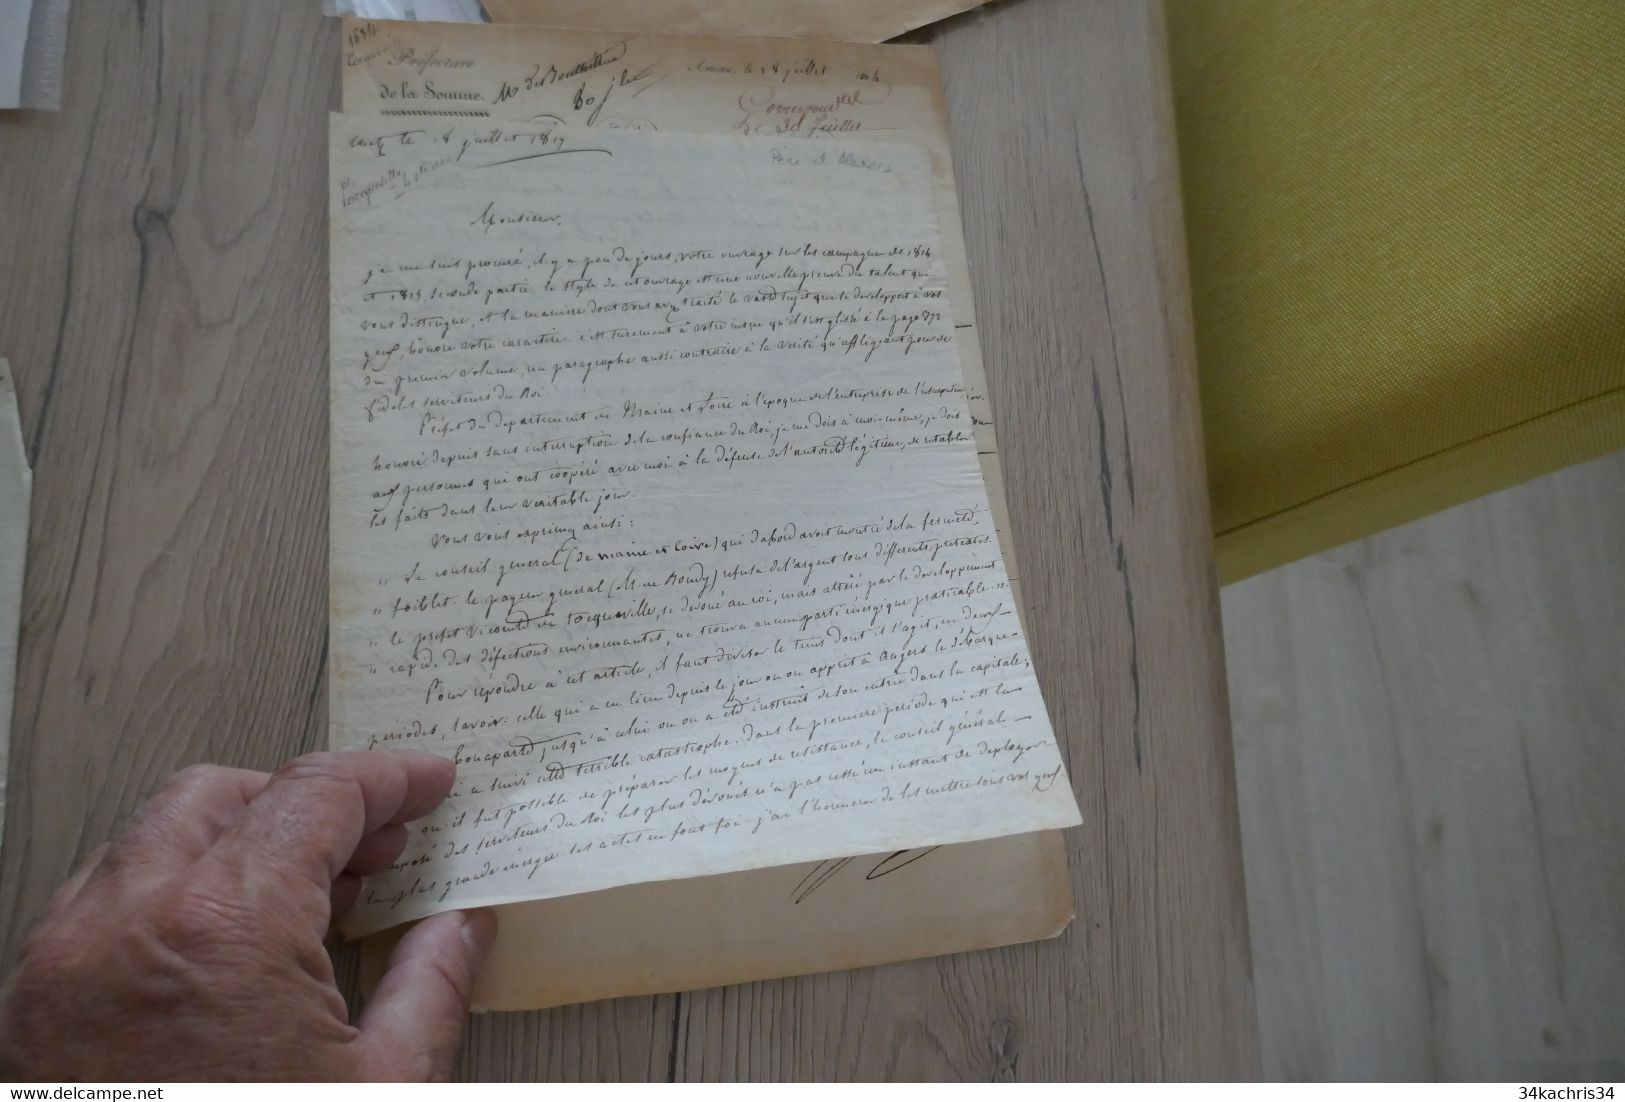 1834
Préfecture
de la Somme.
Amiens, le 28 juillet
30 jt
Correspondu
Le 30 Juillet
Metz le 18 juillet 1817
Tocqueville
Père d'Alexis
Monsieur,
je me suis procuré, il y a peu de jours, votre ouvrage sur les campagnes de 1814
et 1815, seconde partie. le style de cet ouvrage est une nouvelle preuve du talent qui
vous distingue, et la manière dont vous avez traité le vaste sujet qui se développoit à vos
yeux, honore votre caractère. c'est surement à votre insçu qu'il s'est glissé à la page 372
du premier volume, un paragraphe aussi contraire à la vérité qu'affligeant pour de
fideles serviteurs du Roi.
Préfet du département de Maine et Loire à l'époque de l'entreprise de l'usurpateur,
honoré depuis sans interruption de la confiance du Roi, je me dois à moi-même, je dois
aux personnes qui ont coopéré avec moi à la défense de l'autorité légitime, de rétablir
les faits dans leur véritable jour.
Vous vous exprimez ainsi :
" Le conseil general (de maine et Loire) qui d'abord avoit montré de la fermeté,
" foiblit. le payeur general (M. de Boudy) refusa de l'argent sous differents prétextes.
" le prefet vicomte de Tocqueville, se dévoué au roi, mais attéré par le développement
" rapide des défections environnantes, ne trouva aucun parti énergique praticable. "
Pour répondre à cet article, il faut diviser le tems dont il s'agit, en deux
périodes, savoir : celle qui a eu lieu depuis le jour où on apprit à Angers le débarque-
Bonaparte, jusqu'à celui où on a été instruit de son entrée dans la capitale ;
a suivi cette terrible catastrophe. dans la premiere période qui est la
où il fut possible de préparer les moyens de résistance, le conseil général
des serviteurs du Roi les plus dévoués n'a pas cessé un instant de déployer
la plus grande énergie. les actes en font foi. j'ai l'honneur de les mettre sous vos yeux.
34kachris34